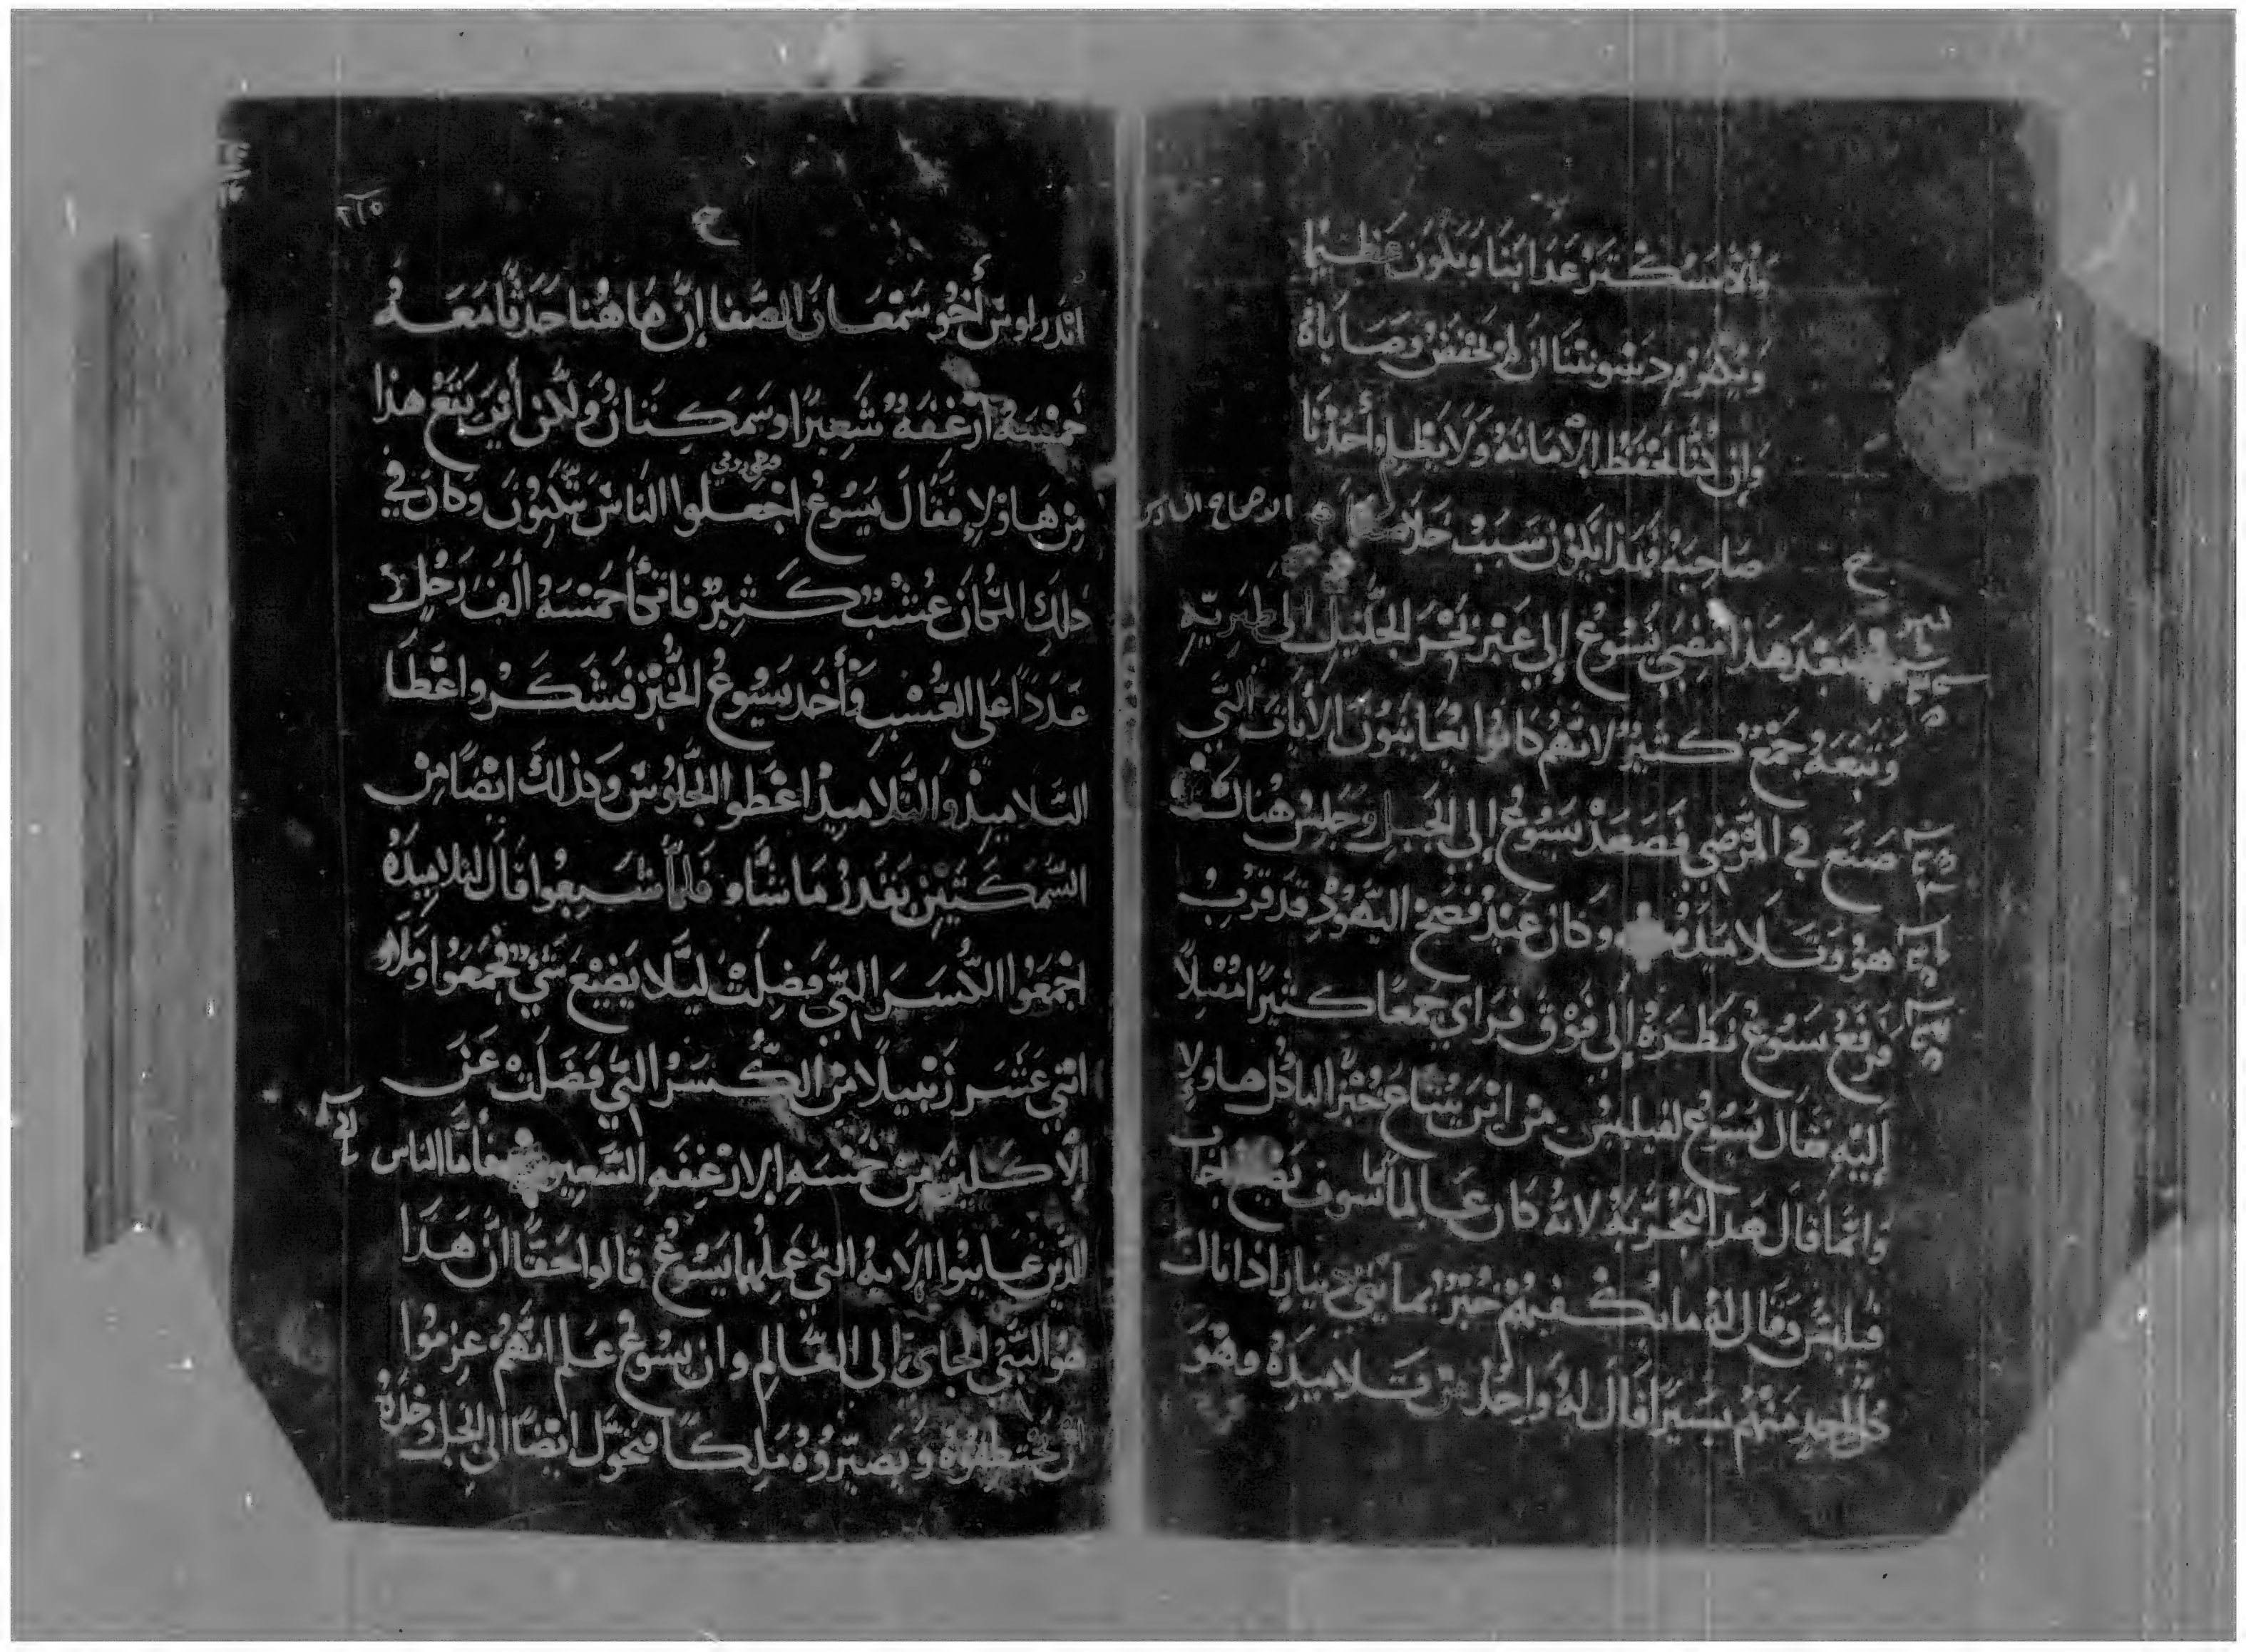 والا سكتر عدابنا ويكون عظيما
وان كنا نحفظ الأمانة ولا يظلم أحدنا
صاحبه فهذا يكون سبب خلاصنا
بعد هذا مضي يسوع إلي عبر بحر الجليل إلى طبرية
وتبعه جمع كثير لانهم كانوا يعاينون الأيات التي
صنع في المرضي فصعد يسوع إلى الجبل وجلس هناك
هو وتلاميذه وكان عيد فصح اليهود قد قرب
فرفع يسوع نظره إلى فوق فراي جمعا كثيرا مقبلا
إليه فقال يسوع لفيلبس من اين يبتاع خبزا لياكل هاولاي
وانما قال هدا لتجربة لانه كان عالما سوف يصنع اجاب
فيلبس وقال له ما يكفيهم خبز بمايتي دينار اذا نال
كل واحد منهم يسيرا فقال له واحد من تلاميذه وهو
ح
٢١٥
اندراوس أخو سمعان الصفا إن ها هنا حدثا معه
خمسة أرغفة شعيرا وسمكتان ولكن أين يقع هذا
من هاولاء فقال يسوع اجعلوا الناس يتكون وكان في
ذلك المكان عشب كثير فاتكأ خمسة ألف رجل
عددا على العشب وأخد يسوع الخبز فشكر واعطا
التلاميذ والتلاميذ اعطوا الجلوس وكذلك ايضا من
السمكتين بقدر ما شاو فلما شبعوا قال لتلاميذه
اجمعوا الكسر التي فضلت ليلا يضيع شي فجمعوا وملاو
اثني عشر زنبيلا من الكسر التي فضلت عن
الأكلين من خمسه الارغفه الشعير فأما الناس
الذين عاينوا الايه التي عملها يسوع قالوا حقا ان هدا
هو النبي الجاي إلى العالم وان يسوع علم انهم عزموا
ان يختطفوه ويصيروه ملكا فتحول ايضا الى الجبل وحده